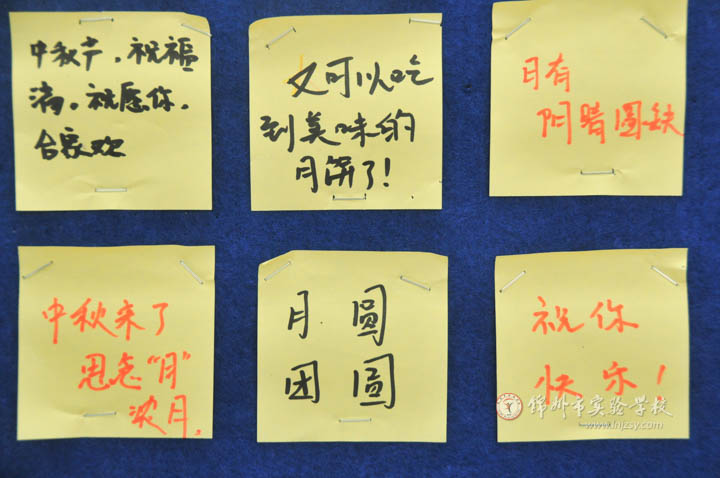 中秋声，祝福
满。祝愿你，
合家欢
又可以吃
到美味的
月饼了！
月有
阴晴圆缺
中秋来了
思念“月”
浓月.
月 圆
团 圆
祝你
快乐！
锦州市实验学校
www.lnjzsy.com